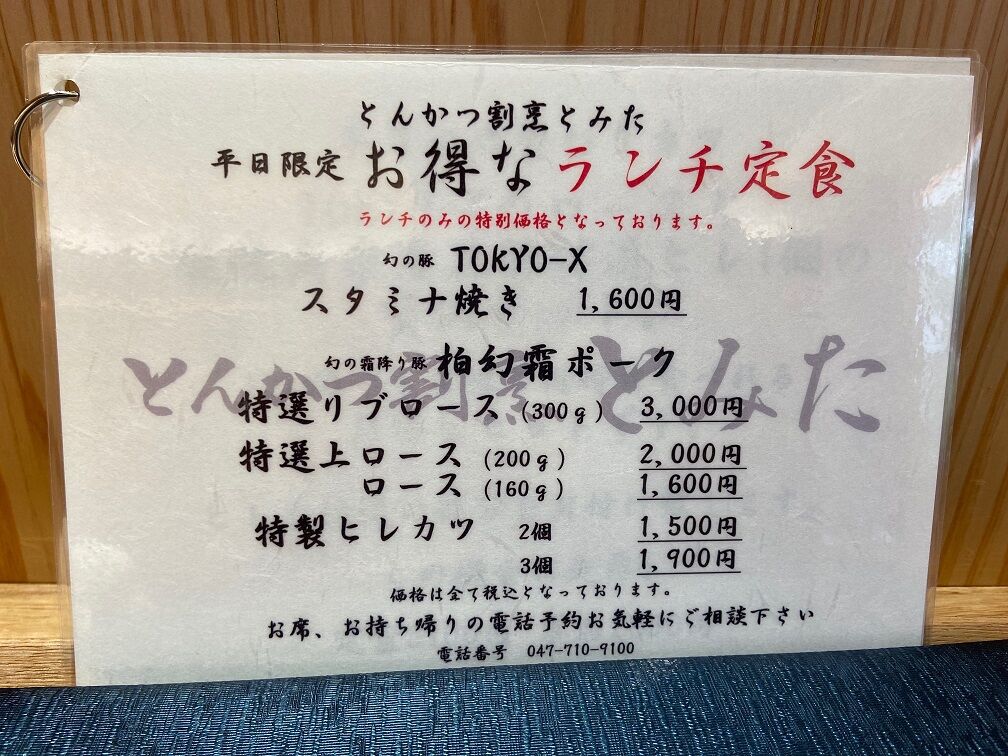 とんかつ割烹とみた
平日限定 お得なランチ定食
ランチのみの特別価格となっております。
幻の豚 TOKYO-X
スタミナ焼き 1,600円
幻の霜降り豚 柏幻霜ポーク
とんかつ割烹 とみた
特選リブロース (300g) 3,000円
特選上ロース (200g) 2,000円
ロース (160g) 1,600円
特製ヒレカツ 2個 1,500円
3個 1,900円
価格は全て税込となっております。
お席、お持ち帰りの電話予約お気軽にご相談下さい
電話番号 047-710-9100